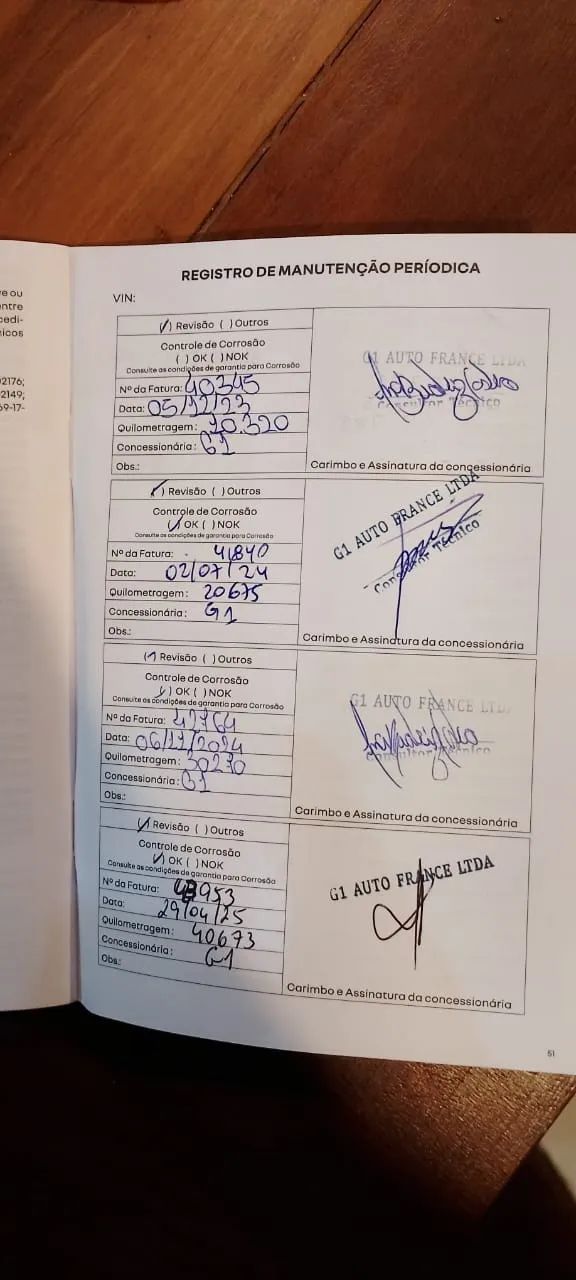 e ou
ntre
cedi-
nicos
02176;
02149;
69-17-
REGISTRO DE MANUTENÇÃO PERÍODICA
VIN:
(✓) Revisão ( ) Outros
Controle de Corrosão
( ) OK ( ) NOK
Consulte as condições de garantia para Corrosão
Nº da Fatura: 40345
Data: 05/12/23
Quilometragem: 10.320
Concessionária: G1
Obs.:
G1 AUTO FRANCE LTDA
Consultor Técnico
Carimbo e Assinatura da concessionária
(✓) Revisão ( ) Outros
Controle de Corrosão
(✓) OK ( ) NOK
Consulte as condições de garantia para Corrosão
Nº da Fatura: 41840
Data: 02/07/24
Quilometragem: 20675
Concessionária: G1
Obs.:
G1 AUTO FRANCE LTDA
Consultor Técnico
Carimbo e Assinatura da concessionária
(✓) Revisão ( ) Outros
Controle de Corrosão
(✓) OK ( ) NOK
Consulte as condições de garantia para Corrosão
Nº da Fatura: 42764
Data: 06/11/2024
Quilometragem: 30270
Concessionária: G1
Obs.:
G1 AUTO FRANCE LTD
Consultor Técnico
Carimbo e Assinatura da concessionária
(✓) Revisão ( ) Outros
Controle de Corrosão
(✓) OK ( ) NOK
Consulte as condições de garantia para Corrosão
Nº da Fatura: 43953
Data: 29/04/25
Quilometragem: 40673
Concessionária: G1
Obs.:
G1 AUTO FRANCE LTDA
Carimbo e Assinatura da concessionária
51